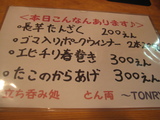 <本日こんなんあります♪>
・長芋たんざく 200えん
・ゴマ入りポークウィンナー 2本
・エビチリ春巻き 300えん
・たこのからあげ 300えん
立ち呑み処 とん再 〜TONR